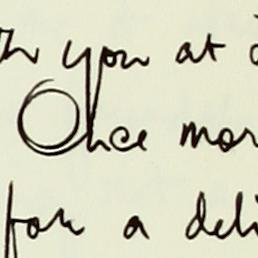 you at
Once mor
for a deli